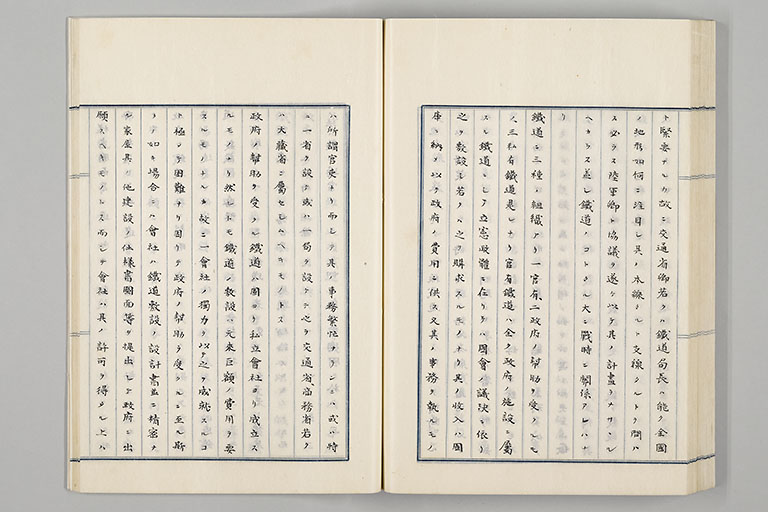 ト緊要ナルカ故ニ交通省卿若クハ鐵道局長ハ能ク全國
ノ地形如何ニ注目シ其ノ本線タルト支線タルトヲ問ハ
ス必ラス陸軍卿ト協議ヲ遂ケ以テ其ノ計畫ヲナサシレ
ヘカラス蓋シ鐵道ノコトタル大ニ戰時ニ關係アレハナ
リ
鐵道ニ三種ノ組織アリ一官有二政府ノ幇助ヲ受クルモ
ノ三私有鐵道是レナリ官有鐵道ハ全ク政府ノ施設ニ屬
スル鐵道ニシテ立憲政體ニ在リテハ國會ノ議決ニ依リ
之ヲ敷設シ若クハ之ヲ購求スルモノナリ其ノ收入ハ國
庫ニ納メ以テ政府ノ費用ニ供ス又其ノ事務ヲ執ルモノ
ハ所謂官吏ナリ而シテ其ノ事務繁忙ナランニハ或ハ特
ニ一省ヲ設ケ或ハ一局ヲ設ケテ之ヲ交通省商務省若ク
ハ大藏省ニ屬セシムヘキモノトス
政府ノ幇助ヲ受クル鐵道ハ固ヨリ私立會社ヨリ成立ス
ルモノナリ然レトモ鐵道ノ敷設ハ元來巨額ノ費用ヲ要
スルモノナルカ故ニ一會社ノ獨力ヲ以テ之ヲ成就スルコ
ト極メテ困難ナリ因リテ政府ノ幇助ヲ受クルニ至ル斯
クノ如キ場合ニハ會社ハ鐵道敷設ノ設計書並ニ精密ナ
ル家屋其ノ他建設ノ仕樣書圖面等ヲ提出シテ政府ニ出
願スヘキモノトス而シテ會社ハ其ノ許可ヲ得タル上ハ